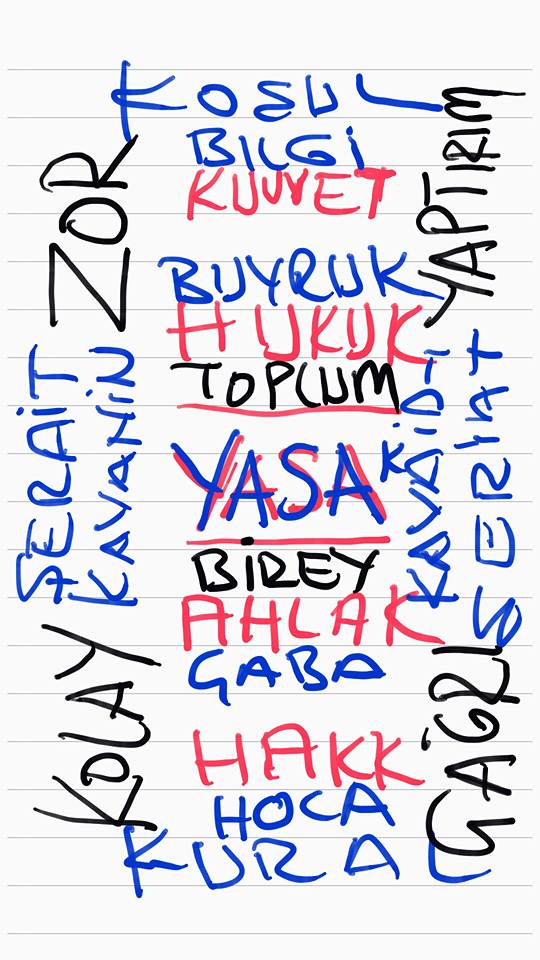 KOŞUL
BILGİ
KUVVET
BUYRUK
HUKUK
TOPLUM
YASA
BİREY
AHLAK
ÇABA
HAKK
HOCA
KURAL
ZOR
ŞERAİT
KAVANİN
KOLAY
YAPTIRIM
KAVAİD-İ
ŞERİAT
ÇAĞRI